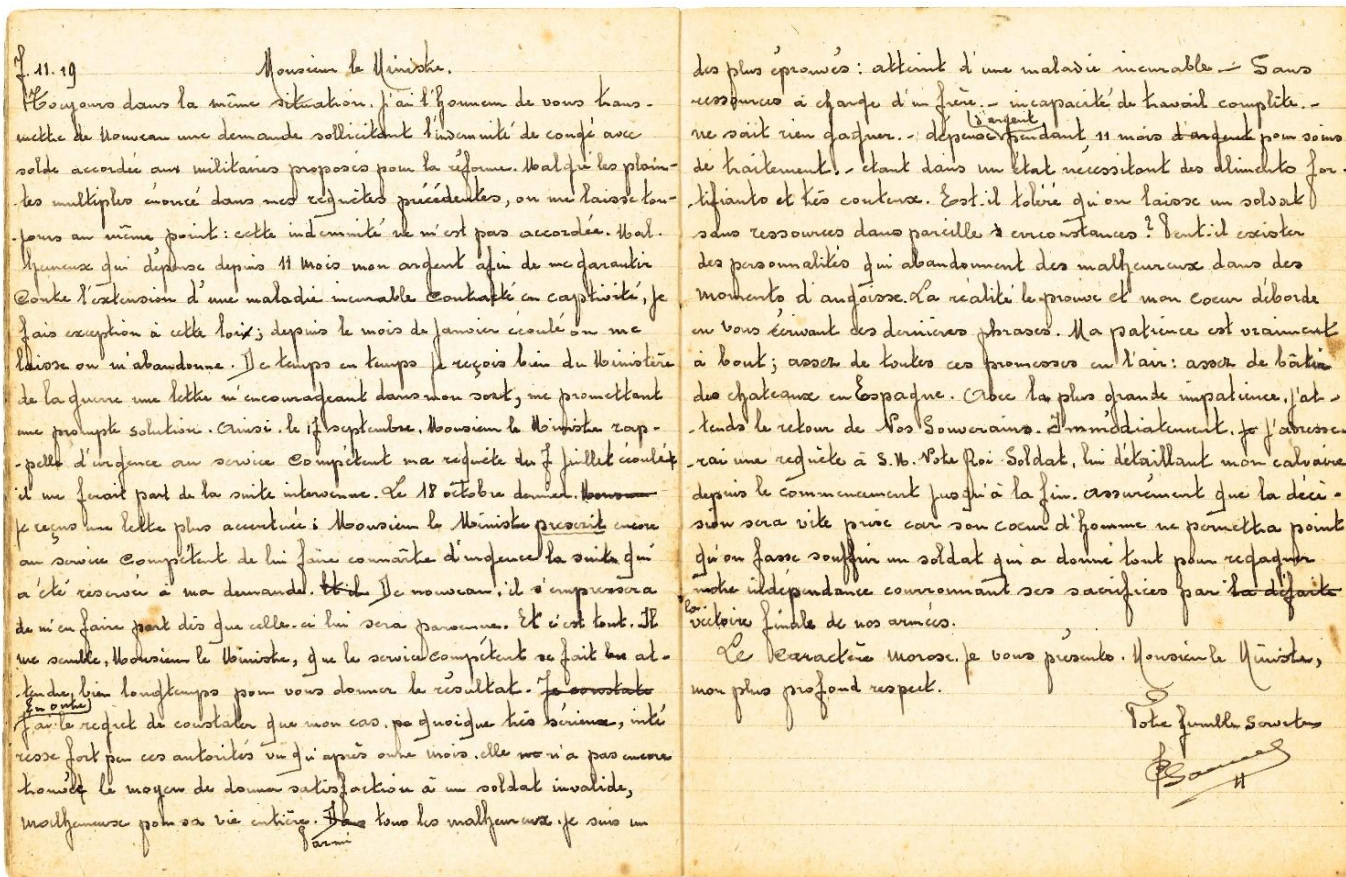 7.11.19
Monsieur le Ministre.
Toujours dans la même situation. J'ai l'honneur de vous trans-
mettre de nouveau une demande sollicitant l'indemnité de congé avec
solde accordée aux militaires proposés pour la réforme. Malgré les plain-
-tes multiples énoncé dans mes requêtes précédentes, on me laisse tou-
-jours au même point: cette indemnité ne m'est pas accordée. Mal-
heureux qui dépense depuis 11 mois mon argent afin de me garantir
contre l'extension d'une maladie incurable contracté en captivité, je
fais exception à cette loi; depuis le mois de janvier écoulé on me
laisse on m'abandonne. De temps en temps je reçois bien du Ministère
de la guerre une lettre m'encourageant dans mon sort, me promettant
une prompte solution. Ainsi. le 17 septembre. Monsieur le Ministre rap-
-pelle d'urgence au service compétent ma requête du 7 juillet écoulé
il me ferait part de la suite intervenue. Le 18 octobre dernier.
je reçus une lettre plus accentuée: Monsieur le Ministre prescrit encore
au service compétent de lui faire connaître d'urgence la suite qui
a été réservée à ma demande. Et il De nouveau, il s'empressera
de m'en faire part dès que celle-ci lui sera parvenue. Et c'est tout. Il
me semble, Monsieur le Ministre, que le service compétent se fait at-
-tendre, bien longtemps pour vous donner le résultat. Je constate
En outre
J'ai le regret de constater que mon cas. quoique très sérieux, inté
resse fort peu ces autorités vu qu'après onze mois. elle n'a pas encore
trouvé le moyen de donner satisfaction à un soldat invalide,
malheureux pour sa vie entière. tous les malheureux. je suis un
Parmi
des plus éprouvés: atteint d'une maladie incurable - Sans
ressources à charge d'un frère. - incapacité de travail complète. -
d'argent
ne sait rien gagner. - dépense pendant 11 mois d'argent pour soins
de traitement. - étant dans un état nécessitant des aliments for-
-tifiants et très couteux. Est-il toléré qu'on laisse un soldat
sans ressources dans pareille circonstances? Peut-il exister
des personnalités qui abandonnent des malheureux dans des
moments d'angoisse. La réalité le prouve et mon coeur déborde
en vous écrivant ces dernières phrases. Ma patience est vraiment
à bout; assez de toutes ces promesses en l'air: assez de bâtir
des chateaux en Espagne. Avec la plus grande impatience, j'at-
-tends le retour de Nos Souverains. Immédiatement. je j'adresse
rai une requête à S.M. Notre Roi-Soldat, lui détaillant mon calvaire
depuis le commencement jusqu'à la fin. Assurément que la déci-
sion sera vite prise car son coeur d'homme ne permettra point
qu'on fasse souffrir un soldat qui a donné tout pour regagner
notre indépendance couronnant ses sacrifices par la défaite
la
victoire finale de nos armées.
Le caractère morose. je vous présente. Monsieur le Ministre,
mon plus profond respect.
Votre humble serviteur